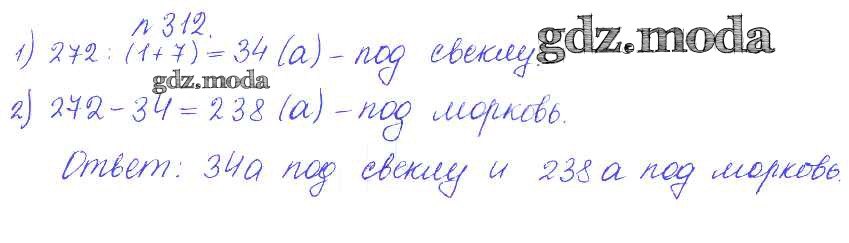 n 312.
1) 272 : (1+7) = 34 (а) – под свеклу.
gdz.moda
gdz.moda
2) 272 – 34 = 238 (а) – под морковь.
Ответ: 34а под свеклу и 238 а под морковь.